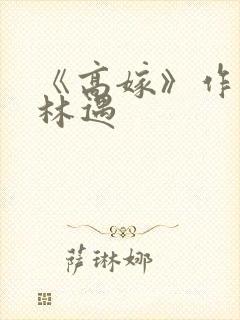 《高嫁》作
林遇
萨琳娜